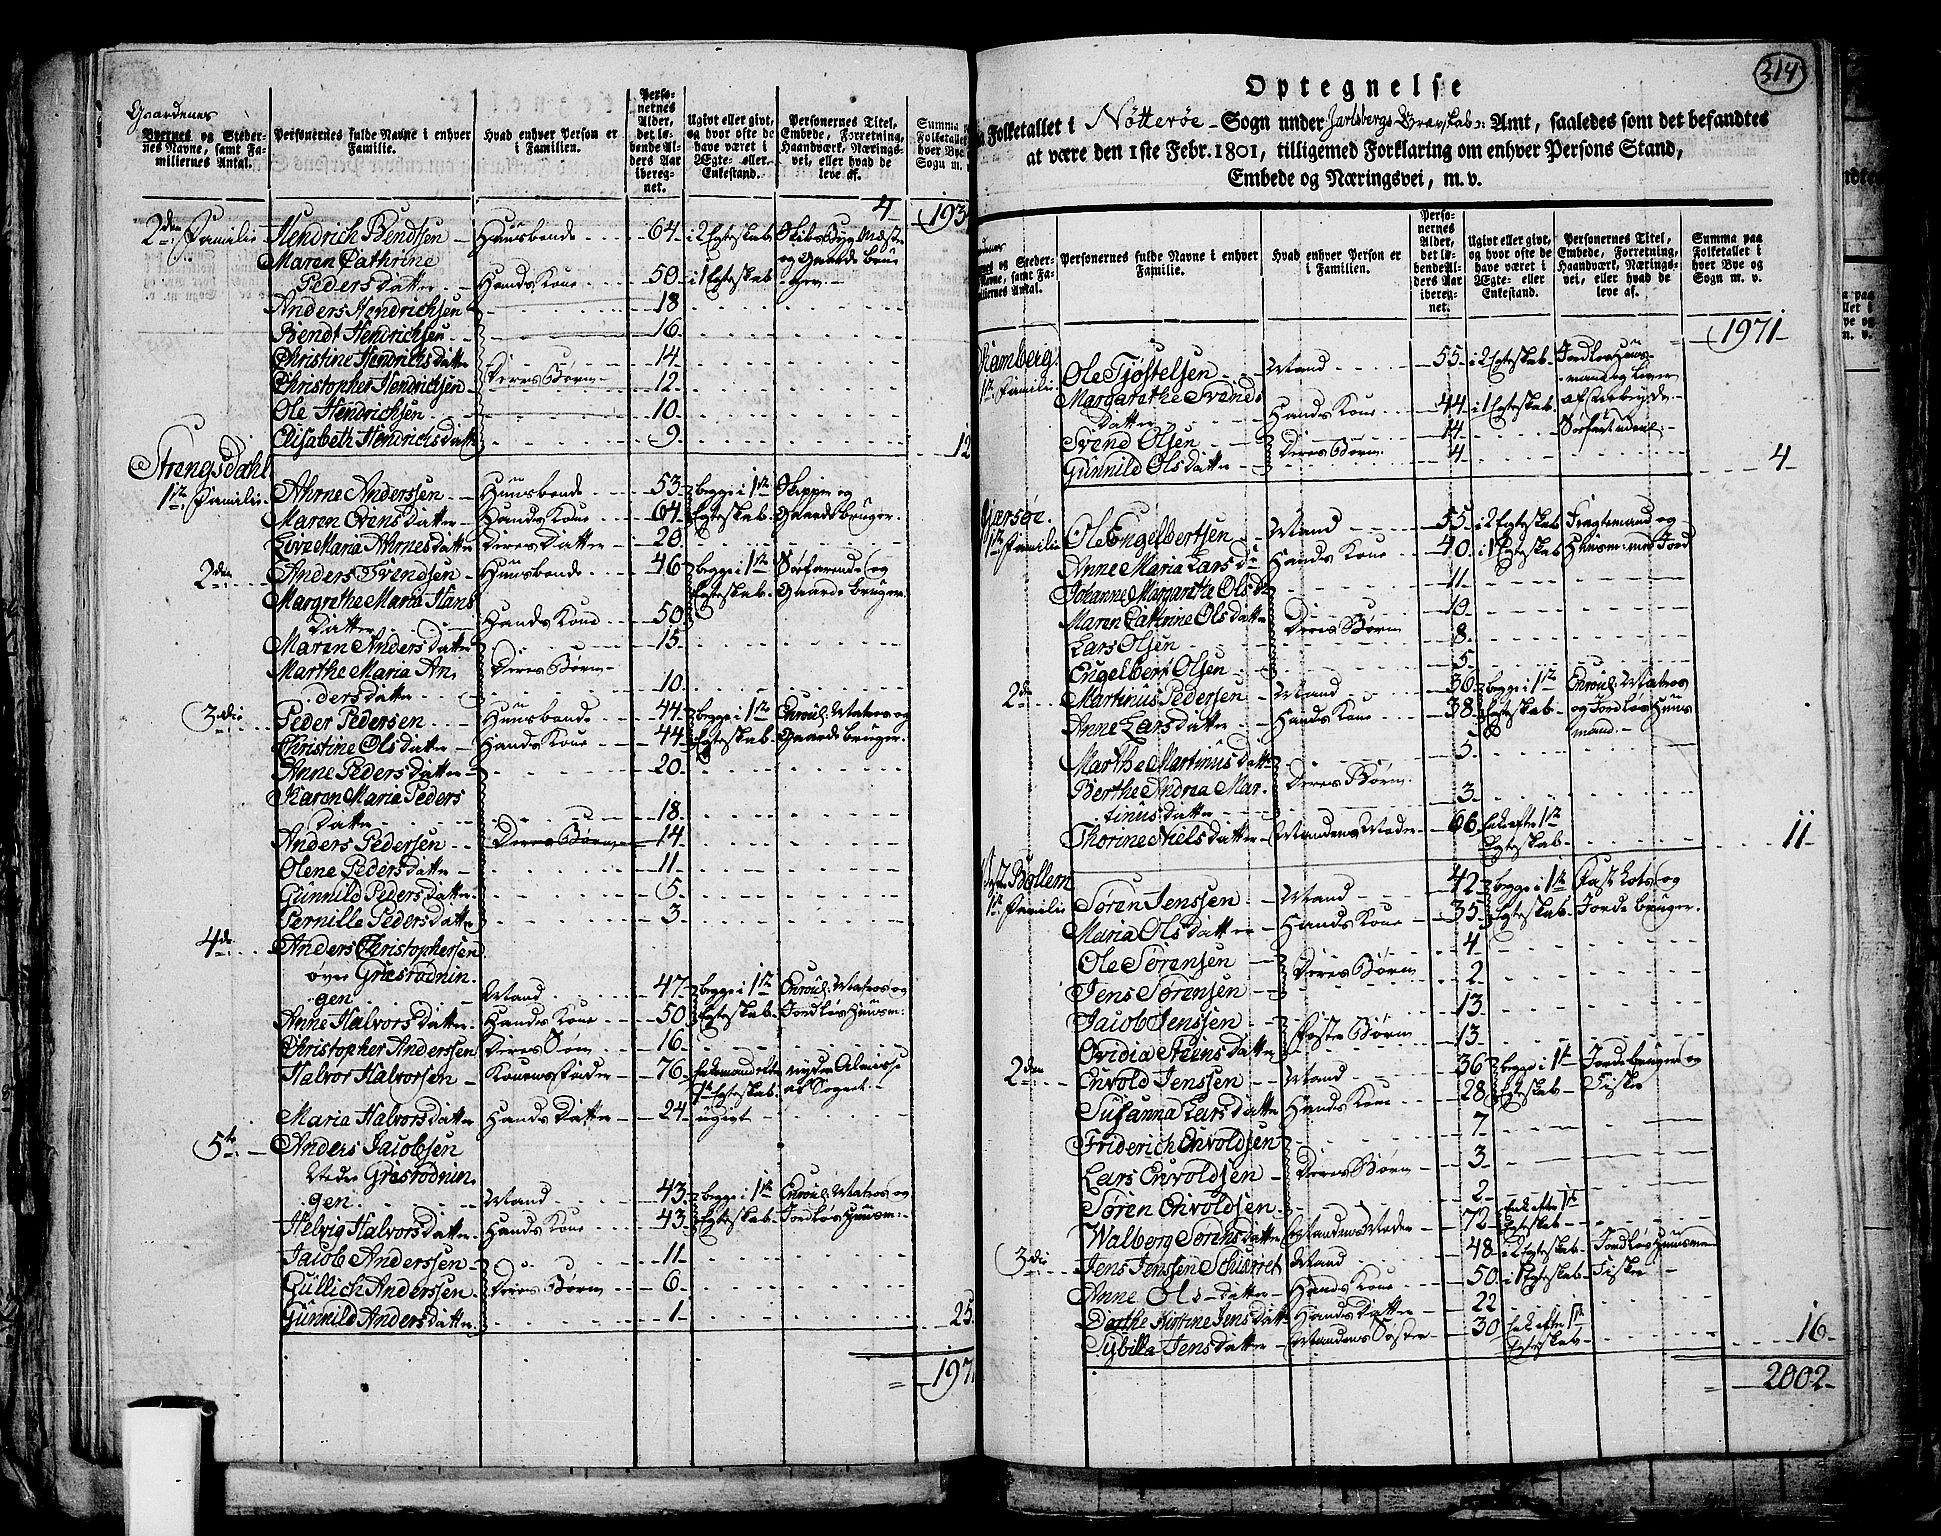 Gaardenes
Byernes og Steder-
nes Navne, samt Fa-
miliernes Antal.
Personernes fulde Navne i enhver
Familie.
Hvad enhver Person er
i Familien.
Perso-
nernes
Alder,
det lø-
bende Al-
ders Aar
ibereg-
net.
Ugivt eller givt,
og hvor ofte de
have været i
Ægte- eller
Enkestand.
Personernes Titel,
Embede, Forretning,
Haandværk, Nærings-
vei, eller hvad de
leve af.
Summa p
Folketallet
hver Bye
Sogn m.
4 193
2den Familie Hendrich Bendtsen Huusbonde 64 i 2 Egteskab Skibs Byg Mester
Maren Cathrine og Gaarde bru-
Pedersdatter Hands Kone 50 i 1 Egteskab ger
Anders Hendrichsen 18
Bendt Hendrichsen 16
Christine Hendrichsdatter 14
Christopher Hendrichsen Deres Børn 12
Ole Hendrichsen 10
Elisabeth Hendrichsdatt 9 12
Strengsdahl
1te Familie Ahrne Anderssen Huusbonde 53 begge i 1te Skipper og
Maren Evensdatter Hands Kone 64 Egteskab Gaardebruger
Live Maria Ahrnesdatter Deres Datter 20
2den Anders Svendsen Huusbonde 46 begge i 1te Søefarende og
Margrethe Maria Hans Egteskab Gaardebruger
datter Hands Kone 50
Maren Andersdatter 15
Marthe Maria An- Deres Børn
dersdatter 10
3die Peder Pedersen Huusbonde 44 begge i 1te Enroul: Matros og
Christine Olsdatter Hands Kone 44 Egteskab Gaardebruger
Anne Pedersdatter 20
Karen Maria Peders
datter 18
Anders Pedersen Deres Børn 14
Olene Pedersdatter 11
Gunnild Pedersdatter 5
Pernille Pedersdatter 3
4de Anders Christophersen
øvre Græsrødnin
gen Mand 47 begge i 1te Enroul: Matros og
Anne Halvorsdatter Hands Kone 50 Egteskab Jordløs Huusm:
Christopher Anderssen Deres Søn 16
Halvor Halvorsen Konens Fader 76 Enkemand efter nyder Almisse
1te Egteskab af Sognet
Maria Halvorsdatter Hands Datter 24 ugivt
5te Anders Jacobsen
Nedre Græsrødnin
gen Mand 43 begge i 1te Enroul: Matros og
Helvig Halvorsdatter Hands Kone 43 Egteskab Jordløs Huusm:
Jacob Anderssen 11
Gullich Anderssen Deres Børn 6
Gunnild Andersdatter 1 25
= 197
314
Optegnelse
Folketallet i Nøtterøe Sogn under Jarlsbergs Grevskabs Amt, saaledes som det befandtes
at være den 1ste Febr. 1801, tilligemed Forklaring om enhver Persons Stand,
Embede og Næringsvei, m. v.
og Steder-
Navne, samt Fa-
miliernes Antal.
Personernes fulde Navne i enhver
Familie.
Hvad enhver Person er
i Familien.
Perso-
nernes
Alder,
det lø-
bende Al-
ders Aar
ibereg-
net.
Ugivt eller givt,
og hvor ofte de
have været i
Ægte- eller
Enkestand.
Personernes Titel,
Embede, Forretning,
Haandværk, Nærings-
vei, eller hvad de
leve af.
Summa paa
Folketallet i
hver Bye og
Sogn m. v.
1971
Ramberg
1te Familie Ole Tjøstelsen Mand 55 i 2 Egteskab Jordløs Huus-
Margarethe Svends mand og lever
datter Hands Kone 44 i 1 Egteskab af Arbeyde
Svend Olsen 14
Gunnild Olsdatter Deres Børn 4 4
Gjersøe
1te Familie Ole Engelbertsen Mand 55 i 2 Egteskab Fragtemand og
Anne Maria Lars dr Hands Kone 40 i 1 Egteskab Huusm: med Jord
Johanne Margarethe Ols dr 11
Maren Cathrine Olsdatter Deres Børn 19
Lars Olsen 8
Engelbert Olsen 5
2den Martinus Pedersen Mand 36 begge i 1te Enroul: Matros
Anne Larsdatter Hands Kone 38 Egteskab og Jordløs Huus
mand
Marthe Martinusdatter 5
Berthe Andrea Mar- Deres Børn
tinusdatter 3
Thorine Nielsdatter Mandens Moder 66 Enke efter 1te
Egteskab 11
Bollem
1te Familie Søren Jenssen Mand 42 begge i 1te Fast Lots og
Maria Olsdatter Hands Kone 35 Egteskab Jordebruger
Ole Sørensen 4
Jens Sørensen Deres Børn 2
Jacob Jenssen 13
Ovidia Steensdatter Foster Børn 13
2den Envold Jenssen Mand 36 begge i 1te Jordebruger og
Susanna Larsdatter Hands Kone 28 Egteskab Fisker
Friderich Envoldsen 7
Lars Envoldsen Deres Børn 3
Søren Envoldsen 2
Walborg Sørensdatter Mandens Moder 72 Enke efter 1te
Egteskab
3die Jens Jenssen Schierret Mand 48 i 2 Egteskab Jordløs Huusman
Anne Olsdatter Hands Kone 50 i 1 Egteskab Fisker
Dorthe Kirstine Jensdatt Hands Datter 22
Sybilla Jensdatter Mandens Søster 30 Enke efter 1te
Egteskab 16
= 2002